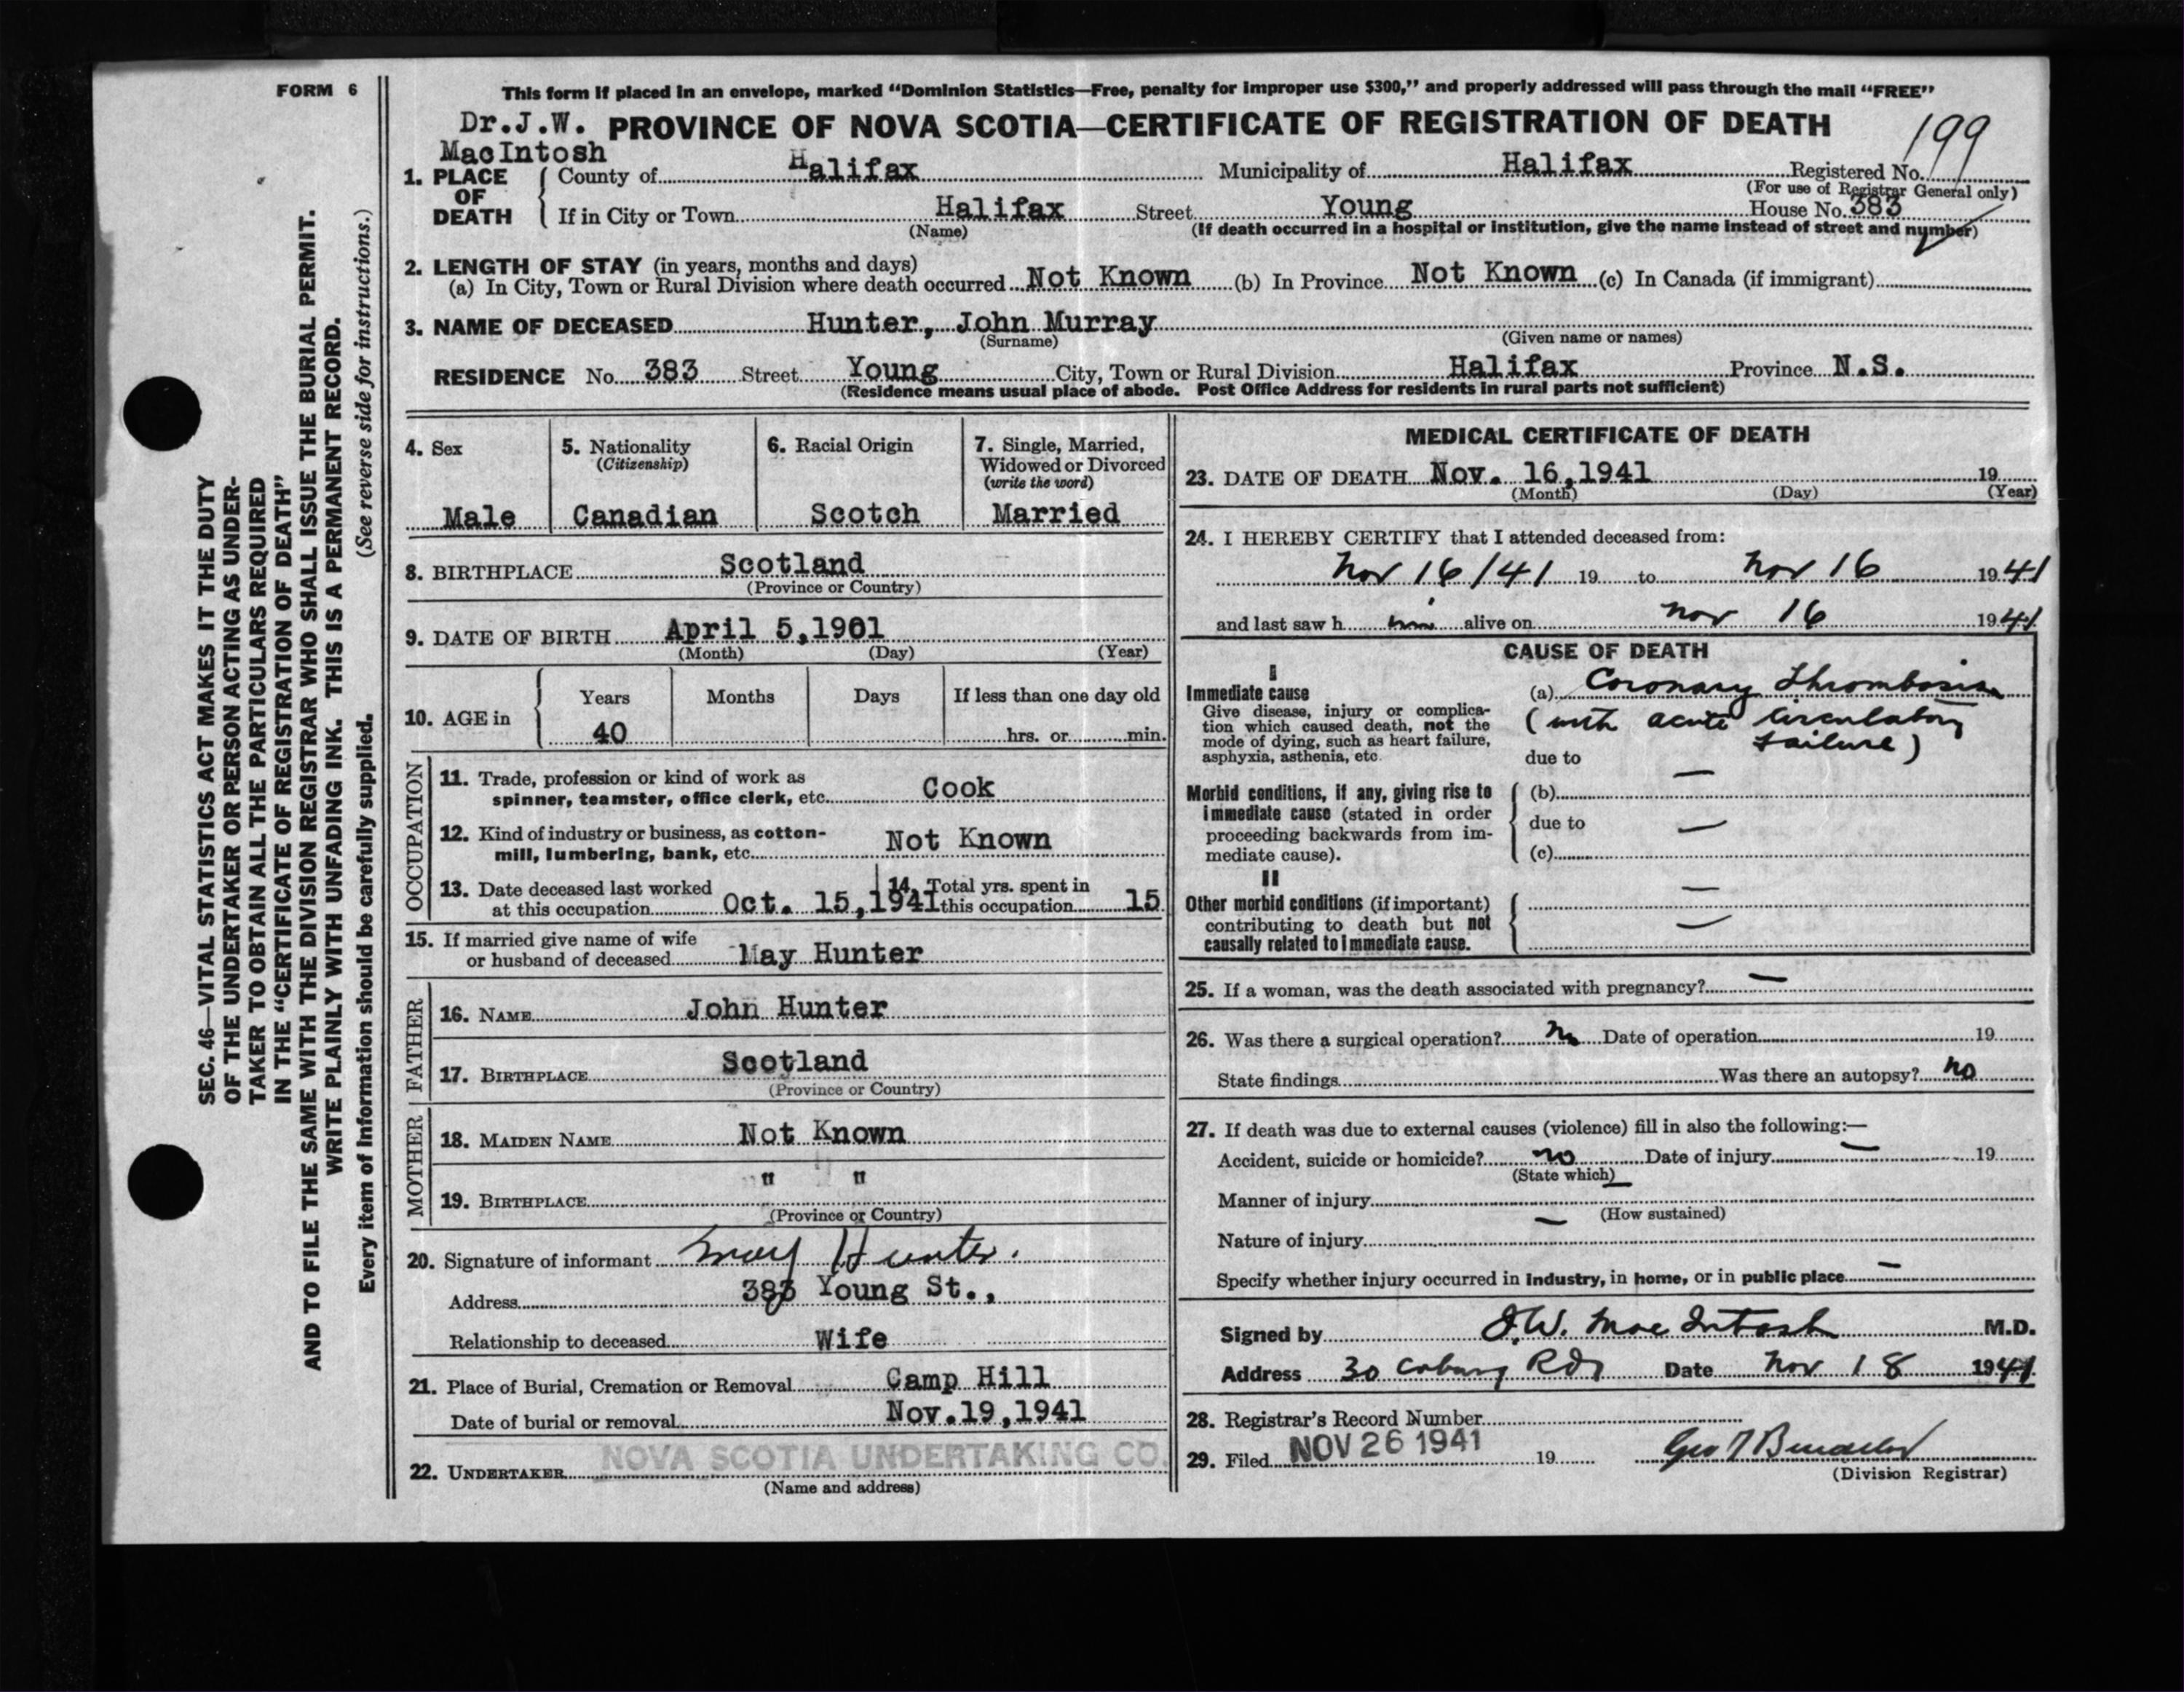 FORM 6
This form if placed in an envelope, marked “Dominion Statistics—Free, penalty for improper use $300,” and properly addressed will pass through the mail “FREE”
Dr.J.W. MacIntosh
PROVINCE OF NOVA SCOTIA—CERTIFICATE OF REGISTRATION OF DEATH
199
1. PLACE OF DEATH
County of Halifax Municipality of Halifax Registered No.
(For use of Registrar General only)
If in City or Town Halifax Street Young House No. 383
(Name) (If death occurred in a hospital or institution, give the name instead of street and number)
2. LENGTH OF STAY (in years, months and days)
(a) In City, Town or Rural Division where death occurred Not Known (b) In Province Not Known (c) In Canada (if immigrant)
3. NAME OF DECEASED Hunter, John Murray
(Surname) (Given name or names)
RESIDENCE No. 383 Street Young City, Town or Rural Division Halifax Province N.S.
(Residence means usual place of abode. Post Office Address for residents in rural parts not sufficient)
4. Sex
Male
5. Nationality
(Citizenship)
Canadian
6. Racial Origin
Scotch
7. Single, Married,
Widowed or Divorced
(write the word)
Married
8. BIRTHPLACE Scotland
(Province or Country)
9. DATE OF BIRTH April 5,1901
(Month) (Day) (Year)
10. AGE in
Years Months Days If less than one day old
40 hrs. or min.
OCCUPATION
11. Trade, profession or kind of work as
spinner, teamster, office clerk, etc. Cook
12. Kind of industry or business, as cotton-
mill, lumbering, bank, etc. Not Known
13. Date deceased last worked
at this occupation Oct. 15,1941
14. Total yrs. spent in
this occupation 15
15. If married give name of wife
or husband of deceased May Hunter
FATHER
16. NAME John Hunter
17. BIRTHPLACE Scotland
(Province or Country)
MOTHER
18. MAIDEN NAME Not Known
19. BIRTHPLACE " "
(Province or Country)
20. Signature of informant May Hunter.
Address 383 Young St.,
Relationship to deceased Wife
21. Place of Burial, Cremation or Removal Camp Hill
Date of burial or removal Nov.19,1941
22. UNDERTAKER NOVA SCOTIA UNDERTAKING CO.
(Name and address)
MEDICAL CERTIFICATE OF DEATH
23. DATE OF DEATH Nov. 16,1941 19
(Month) (Day) (Year)
24. I HEREBY CERTIFY that I attended deceased from:
Nov 16/41 19 to Nov 16 1941
and last saw h him alive on Nov 16 1941
CAUSE OF DEATH
I
Immediate cause
Give disease, injury or complica-
tion which caused death, not the
mode of dying, such as heart failure,
asphyxia, asthenia, etc.
(a) Coronary Thrombosis
(with acute circulatory
failure)
due to —
Morbid conditions, if any, giving rise to
immediate cause (stated in order
proceeding backwards from im-
mediate cause).
(b)
due to —
(c)
II
Other morbid conditions (if important)
contributing to death but not
causally related to immediate cause.
—
—
25. If a woman, was the death associated with pregnancy? —
26. Was there a surgical operation? No Date of operation 19
State findings Was there an autopsy? no
27. If death was due to external causes (violence) fill in also the following:—
Accident, suicide or homicide? no Date of injury — 19
(State which)
Manner of injury —
(How sustained)
Nature of injury —
Specify whether injury occurred in industry, in home, or in public place —
Signed by J.W. MacIntosh M.D.
Address 30 Coburg Rd Date Nov 18 1941
28. Registrar's Record Number
29. Filed NOV 26 1941 19
(Division Registrar)
SEC. 46—VITAL STATISTICS ACT MAKES IT THE DUTY
OF THE UNDERTAKER OR PERSON ACTING AS UNDER-
TAKER TO OBTAIN ALL THE PARTICULARS REQUIRED
IN THE “CERTIFICATE OF REGISTRATION OF DEATH”
AND TO FILE THE SAME WITH THE DIVISION REGISTRAR WHO SHALL ISSUE THE BURIAL PERMIT.
WRITE PLAINLY WITH UNFADING INK. THIS IS A PERMANENT RECORD.
Every item of information should be carefully supplied. (See reverse side for instructions.)